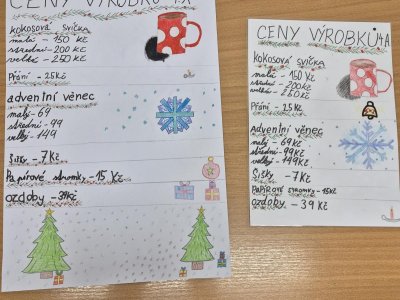 CENY VÝROBKŮ 4A
KOKOSOVÁ SVÍČKA
malé - 150 Kč
střední - 200 Kč
velké - 250 Kč
Přání - 25Kč
adventní věnec
malý - 69
střední - 99
velký - 149
Šišky - 7Kč
Papírové stromky - 15 Kč
ozdoby - 39Kč
CENY VÝROBKŮ 4A
KOKOSOVÁ SVÍČKA
malá - 150 Kč
střední - 200Kč
velké - 250Kč
Přání - 25 Kč
Adventní věnec
malý - 69Kč
střední - 99Kč
velký - 149Kč
Šišky - 7Kč
Papírové stromky - 15Kč
ozdoby - 39Kč